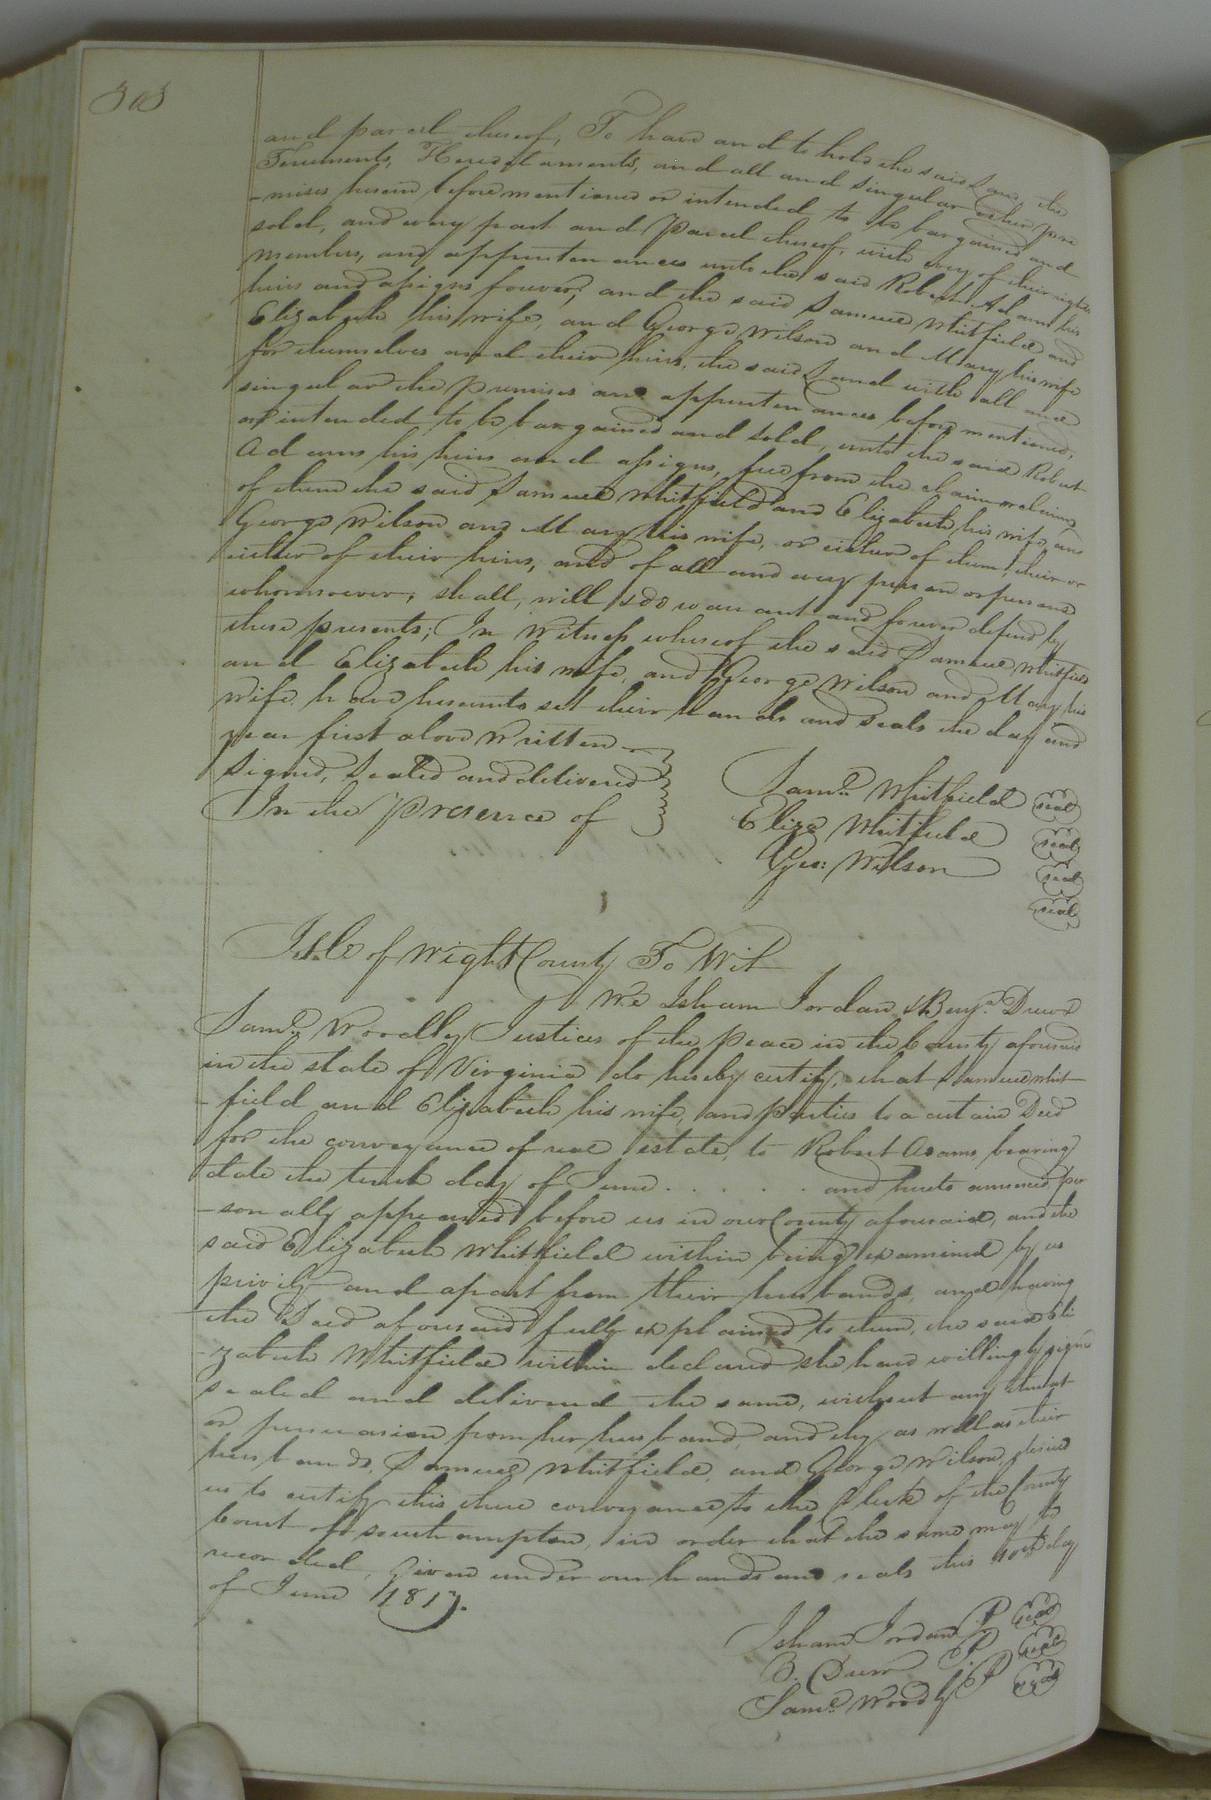 303
and parcel thereof, To have and to hold the said Land, the
Tenements, Hereditaments, and all and singular other pre
-mises herein before mentioned or intended to be bargained and
sold, and every part and Parcel thereof, with every of their rights
members, and appurtenances unto the said Robert Adams his
heirs and assigns forever; and the said Samuel Whitfield and
Elizabeth his wife, and George Wilson and Mary his wife
for themselves and their heirs, the said Land with all and
singular the Premises and appurtenances before mentioned,
or intended to be bargained and sold, unto the said Robert
Adams his heirs and assigns, free from the claim or claims
of them the said Samuel Whitfield and Elizabeth his wife, and
George Wilson and Mary his wife, or either of them, their or
either of their heirs, and of all and every person or persons
whomsoever; shall, will & do warrant and forever defend by
these presents; In Witness whereof the said Samuel Whitfield
and Elizabeth his wife, and George Wilson and Mary his
wife, have hereunto set their hands and seals the day and
year first above written
Signed, Sealed and delivered
In the Presence of
Saml. Whitfield seal
Eliza Whitfield seal
Geo: Wilson seal
seal
Isle of Wight County To Wit
We Isham Jordan & Benja. Drew &
Saml. Woodly Justices of the Peace in the County aforesaid
in the state of Virginia do hereby certify, that Samuel Whit-
-field and Elizabeth his wife, and parties to a certain Deed
for the conveyance of real estate, to Robert Adams bearing
date the tenth day of June . . . . . and hereto annexed, per
-sonally appeared before us in our County aforesaid, and the
said Elizabeth Whitfield within being examined by us
privily and apart from their husbands, and having
the Deed aforesaid fully explained to them, the said Eli
-zabeth Whitfield within declared she had willingly signed
sealed and delivered the same, without any threat
or persuasion from her husband, and they as well as their
husbands, Samuel Whitfield, and George Wilson, desired
us to certify this there conveyance to the Clerk of the County
Court of Southampton, in order that the same may be
recorded, Given under our hands and seals this 10th day
of June 1817.
Isham Jordan JP seal
B. Drew JP seal
Saml. Woodly JP seal